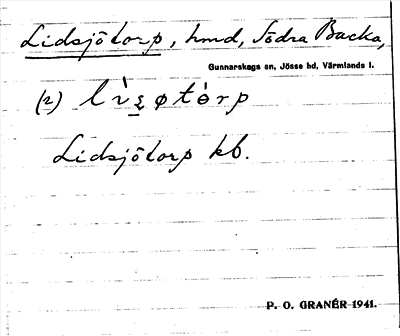 Lidsjötorp, hmd, Södra Backa,
Gunnarskogs sn, Jösse hd, Värmlands l.
(2) lìs̱øtòrp
Lidsjötorp kb.
P. O. GRANÉR 1941.